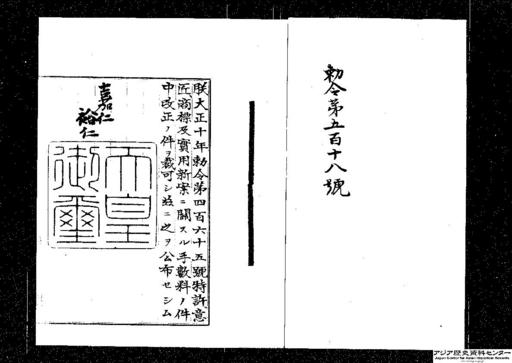 勅令第五百十八號
朕大正十年勅令第四百六十五號特許意
匠商標及實用新案ニ關スル手數料ノ件
中改正ノ件ヲ裁可シ玆ニ之ヲ公布セシム
嘉仁
裕仁
天皇
御璽
アジア歴史資料センター
Japan Center for Asian Historical Records